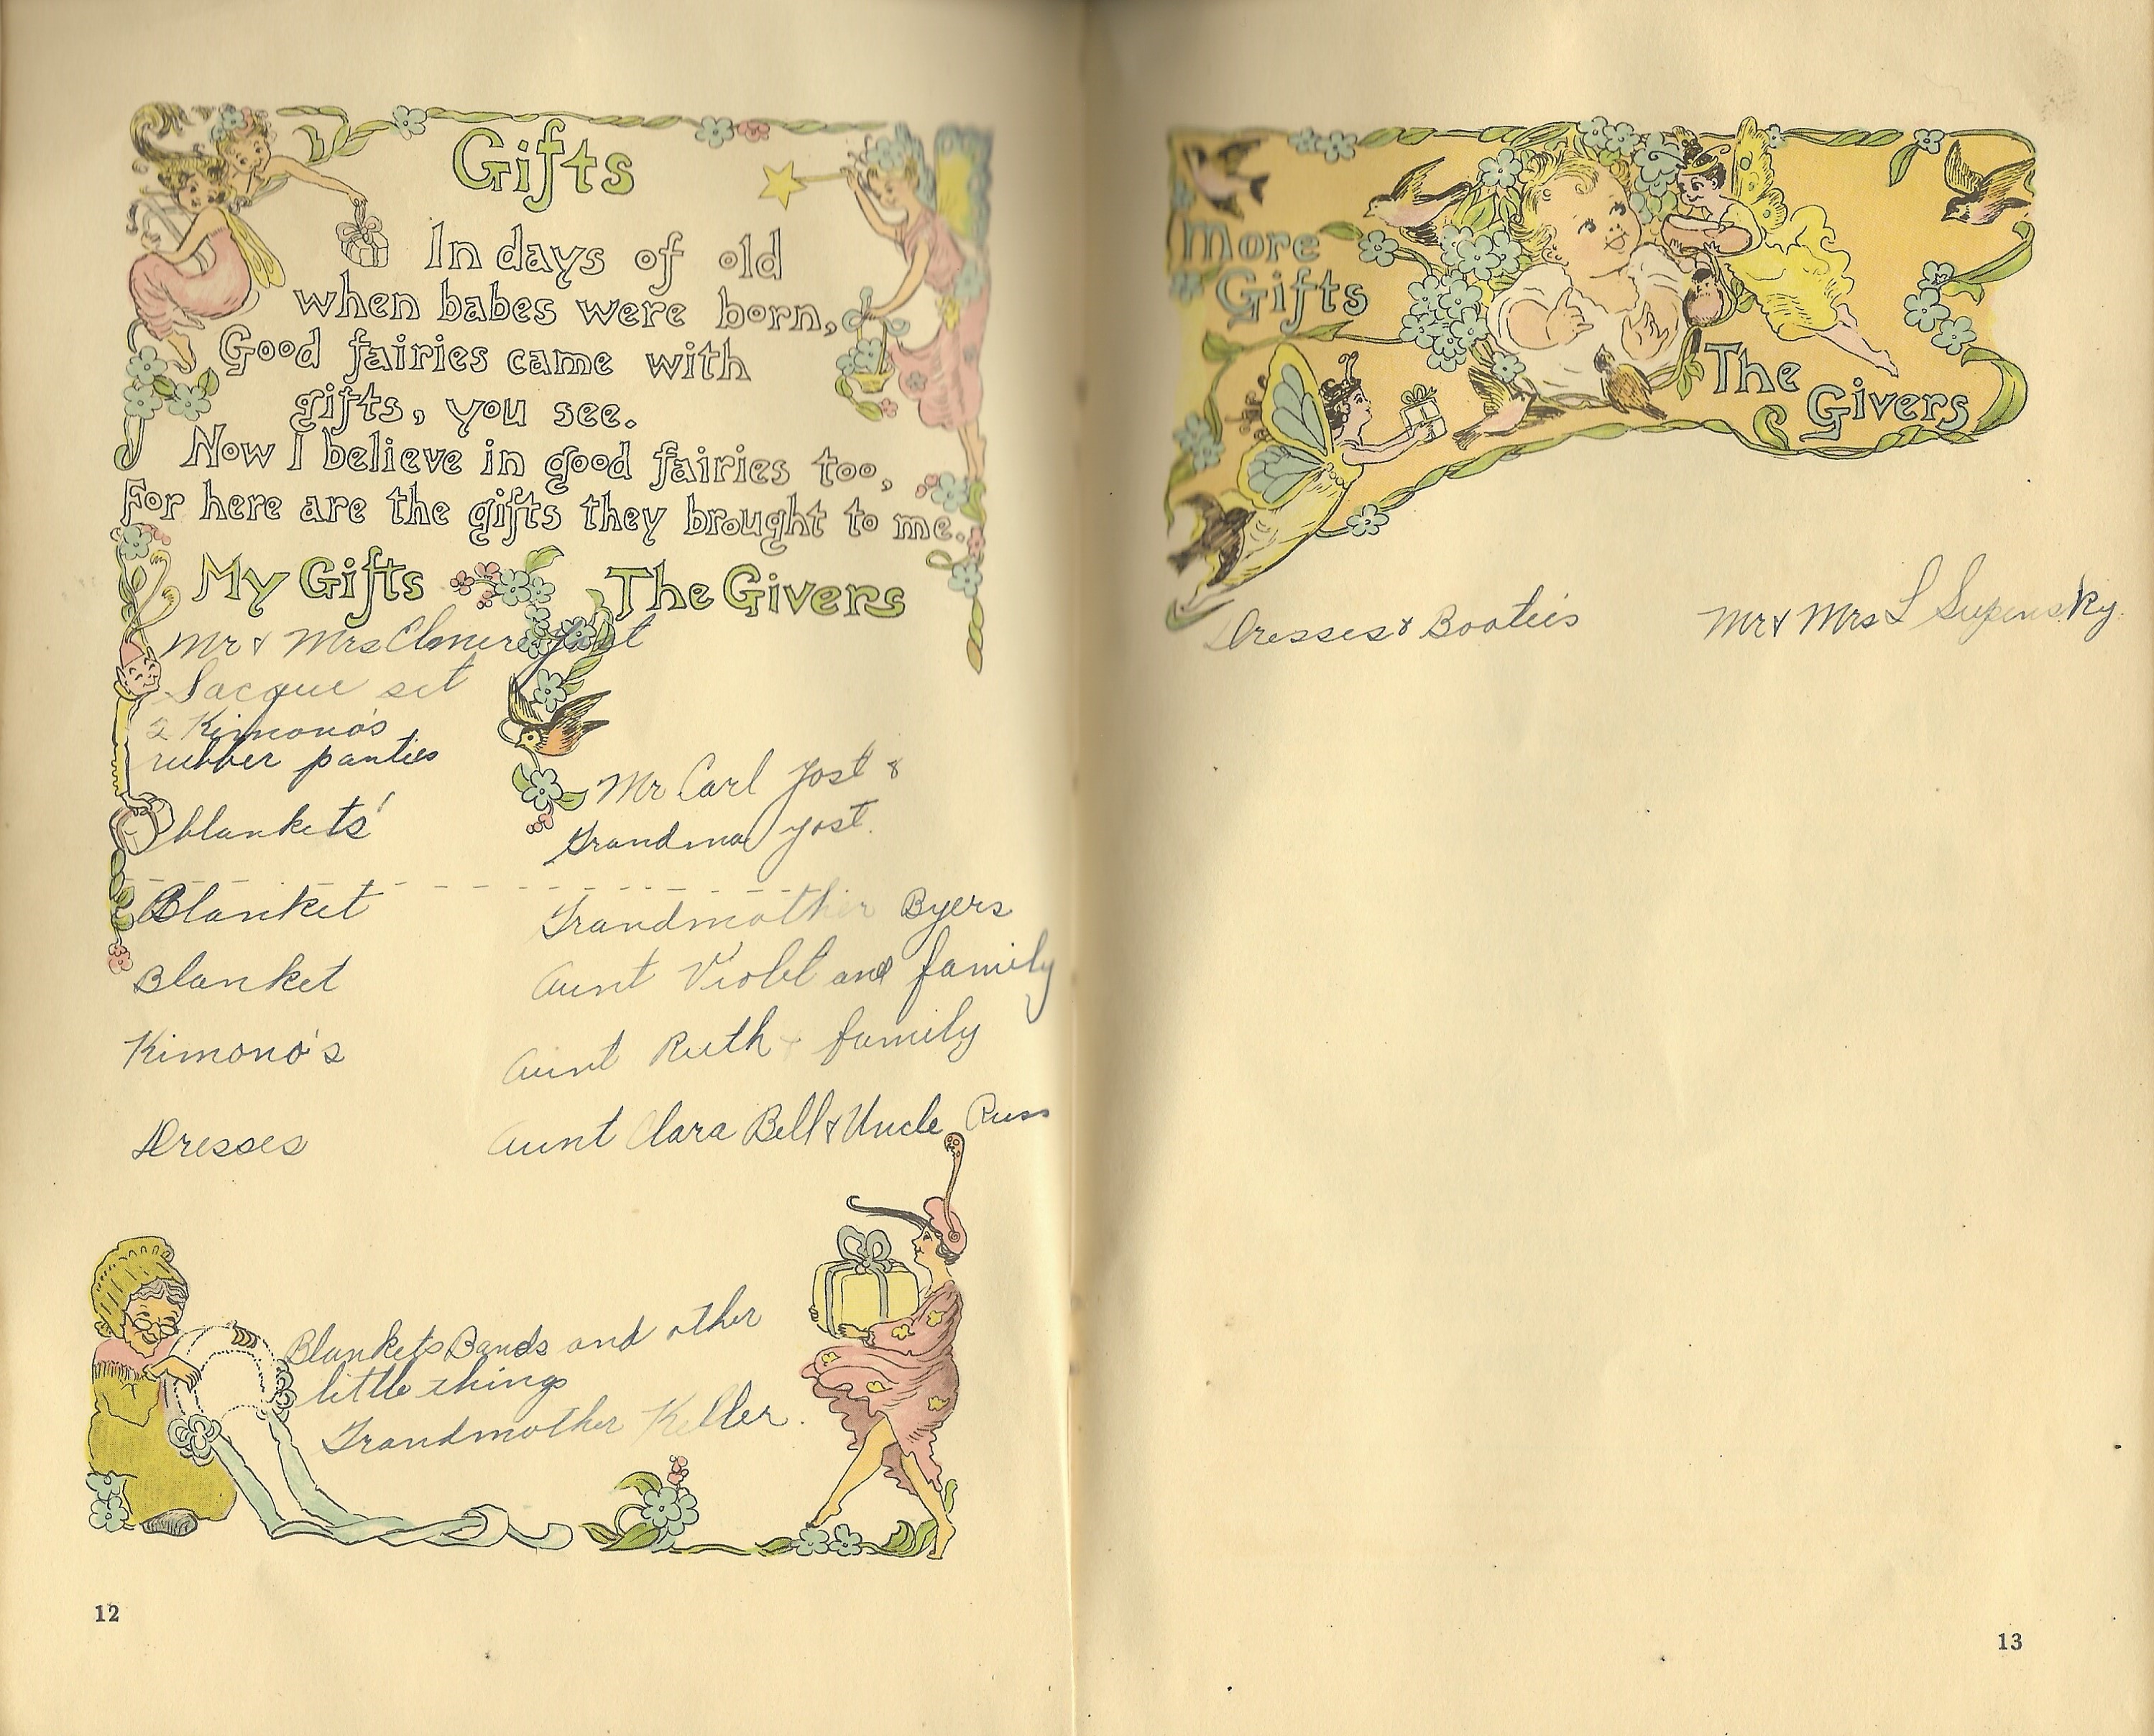 Gifts
In days of old
when babes were born,
Good fairies came with
gifts, you see.
Now I believe in good fairies too,
For here are the gifts they brought to me.
My Gifts The Givers
Mr & Mrs
Sacque set
2 Kimono's
rubber panties
blankets'
Mr Carl Yost &
Grandma Yost.
Blanket Grandmother Byers
Blanket Aunt Violet and family
Kimono's Aunt Ruth + family
Dresses Aunt Clara Bell & Uncle Russ
Blankets Bands and other
little things
Grandmother Keller.
12
More
Gifts
The
Givers
Dresses & Booties Mr & Mrs L
13